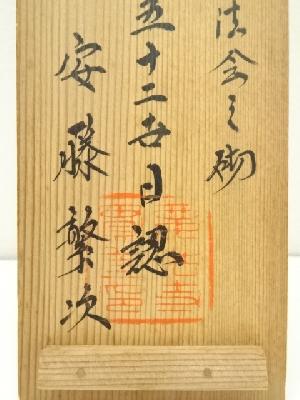 法会之砌
五十二世日認
安藤繁次